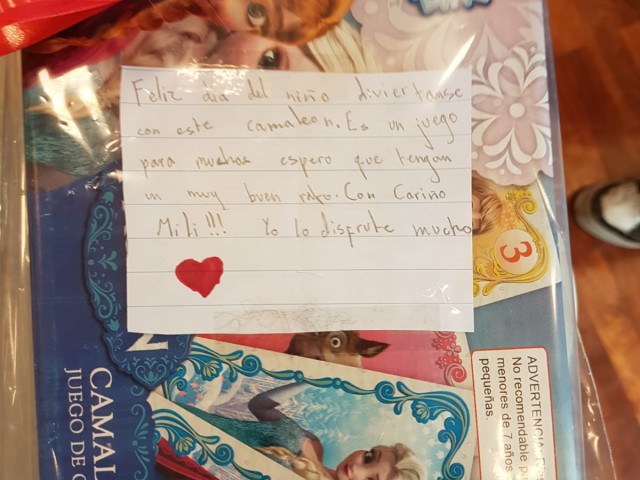 Feliz dia del niño diviertanse
con este camaleon. Es un juego
para muchas espero que tengan
un muy buen rato. Con Cariño
Mili!!! Yo lo disfrute mucho
3
CAMAL
JUEGO DE C
ADVERTENCIA
No recomendable p
menores de 7 años
pequeñas.